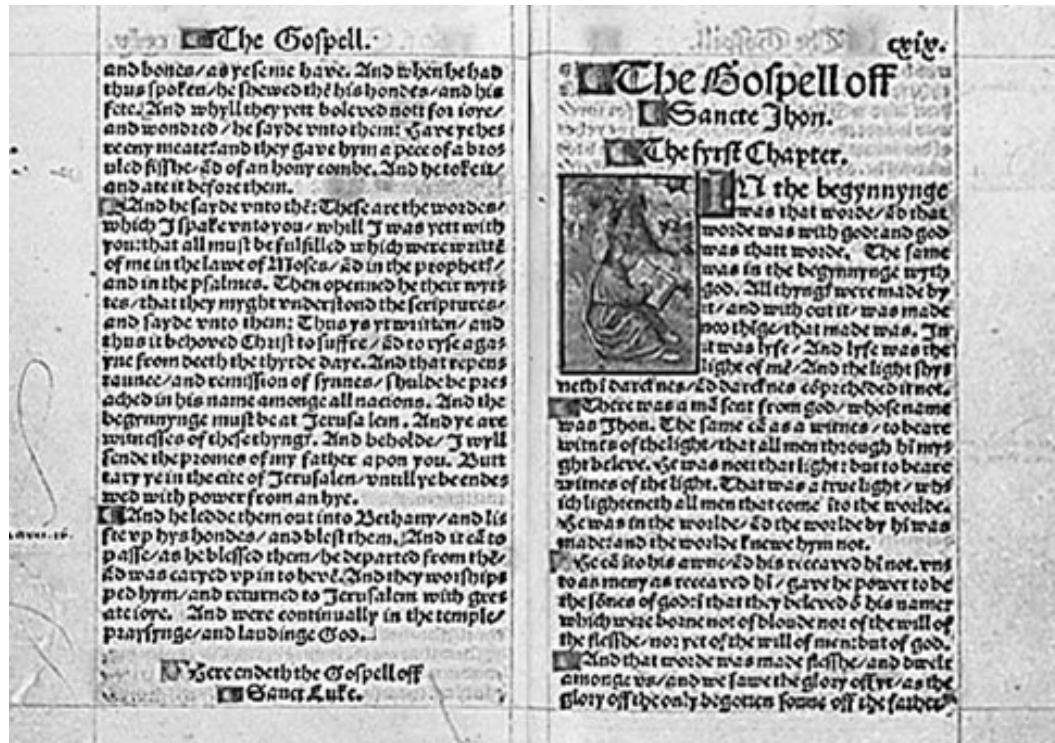 The Gospell.
and bones/as ye se me have. And when he had
thus spoken/he shewed thē his hondes/and his
fete. And whyll they yett beleved nott for ioye/
and wondred/he sayde vnto them: Have ye here
eny meate? and they gave hym a pece of a broy
uled fisshe/ād of an hony combe. And he toke it/
and ate it before them.
And he sayde vnto thē: These are the wordes/
which I spake vnto you/whill I was yett with
you: that all must be fulfilled which were writtē
of me in the lawe of Moses/ād in the prophetꝭ/
and in the psalmes. Then openned he their wyt
tes/that they myght vnderstond the scriptures/
and sayde vnto them: Thus ys yt written/and
thus it behoved Christ to suffre/ād to ryse aga
yne from deeth the thyrde daye. And that repen
taunce/and remission of synnes/shulde be pre
ached in his name amonge all nacions. And the
begynnynge must be at Jerusalem. And ye are
witnesses of these thyngꝭ. And beholde/I wyll
sende the promes of my father apon you. Butt
tary ye in the cite of Jerusalen/vntill ye be ende
wed with power from an hye.
And he ledde them out into Bethany/and lif
te vp hys hondes/and blest them. And it cā to
passe/as he blessed them/he departed from thē/
ād was caryed vp in to hevē. And they worship
ped hym/and returned to Jerusalem with gre
ate ioye. And were continually in the temple/
praysynge/and laudinge God.
Here endeth the Gospell off
Sanct Luke.
cxix.
The Gospell off
Sancte Jhon.
The fyrst Chapter.
IN the begynnynge
was that worde/ād that
worde was with god: and god
was thatt worde. The same
was in the begynnynge wyth
god. All thyngꝭ were made by
it/and with out it/was made
noo thīge/that made was. In
it was lyfe/And lyfe was the
light of mē/And the light shy
neth ī darcknes/ād darcknes cōprehēded it not.
There was a mā sent from god/whose name
was Jhon. The same cā as a witnes/to beare
witnes of the light/that all men through hī my
ght beleve. He was nott that light: but to beare
witnes of the light. That was a true light/whi
ich lighteneth all men that come īto the worlde.
He was in the worlde/ād the worlde by hī was
made: and the worlde knewe hym not.
He cā īto his awne/ād his receaved hī not. vnt
to as meny as receaved hī/gave he power to be
the sōnes of god: ī that they beleved ō his name:
which were borne not of bloude nor of the will of
the flesshe/nor yet of the will of men: but of god.
And that worde was made flesshe/and dwelt
amonge vs/and we sawe the glory off yt/as the
glory off the only begotten sonne off the father